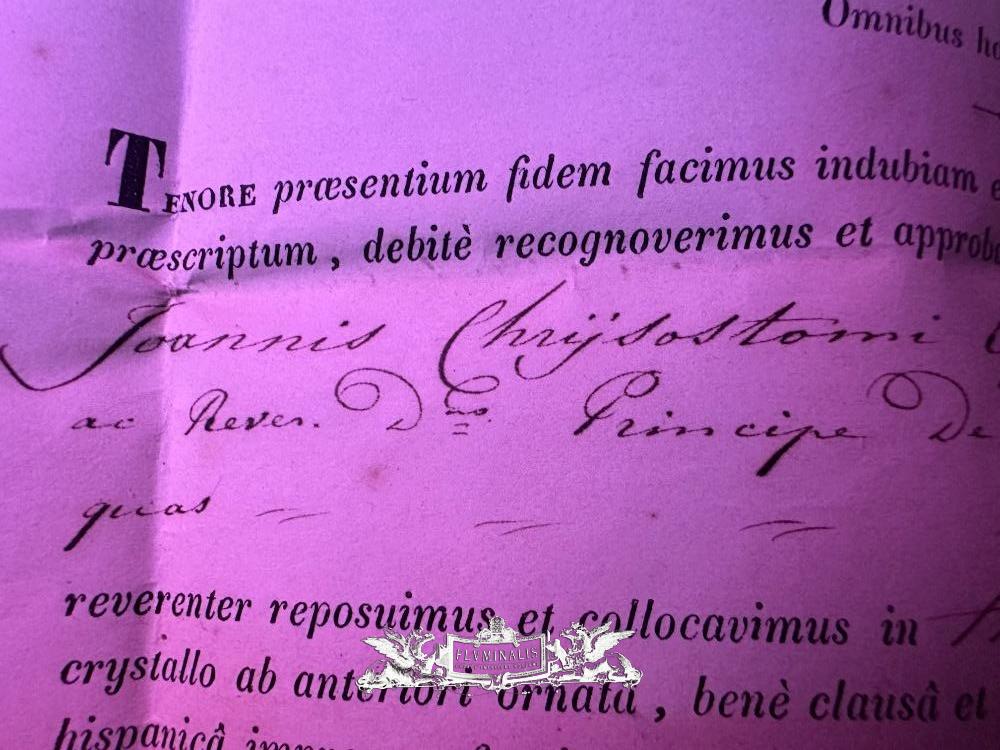 Omnibus
TENORE præsentium fidem facimus indubiam
præscriptum, debitè recognoverimus et
Joannis Chrÿsostomi
ac Rever. Dno. Principe De
quas
reverenter reposuimus et collocavimus in
crystallo ab anteriori ornata, benè clausâ et
FLVMINALIS
hispanicâ